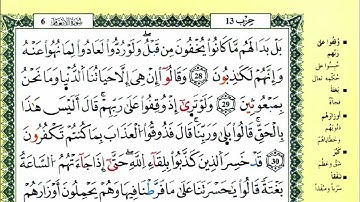 سُورَةُ الْأَنْعَامِ 6
حِزْب 13
بَلْ بَدَا لَهُم مَّا كَانُوا يُخْفُونَ مِن قَبْلُ وَلَوْ رُدُّوا لَعَادُوا لِمَا نُهُوا عَنْهُ
وَإِنَّهُمْ لَكَٰذِبُونَ 28 وَقَالُوا إِنْ هِيَ إِلَّا حَيَاتُنَا الدُّنْيَا وَمَا نَحْنُ
بِمَبْعُوثِينَ 29 وَلَوْ تَرَىٰ إِذْ وُقِفُوا عَلَىٰ رَبِّهِمْ قَالَ أَلَيْسَ هَٰذَا
بِالْحَقِّ قَالُوا بَلَىٰ وَرَبِّنَا قَالَ فَذُوقُوا الْعَذَابَ بِمَا كُنتُمْ تَكْفُرُونَ
30 قَدْ خَسِرَ الَّذِينَ كَذَّبُوا بِلِقَاءِ اللَّهِ حَتَّىٰ إِذَا جَاءَتْهُمُ السَّاعَةُ
بَغْتَةً قَالُوا يَٰحَسْرَتَنَا عَلَىٰ مَا فَرَّطْنَا فِيهَا وَهُمْ يَحْمِلُونَ أَوْزَارَهُمْ
وُقِفُوا عَلَى
رَبِّهِم
حُبِسُوا عَلَى
حُكْمِهِ تَعَالَى
بَغْتَةً
فَجْأَةً
أَوْزَارَهُمْ
ذُنُوبَهُمْ
وَخَطَايَاهُمْ
كَبُرَ
شَقَّ وَعَظُمَ
نَفَقًا
سَرَبًا وَمَنْفَذًا